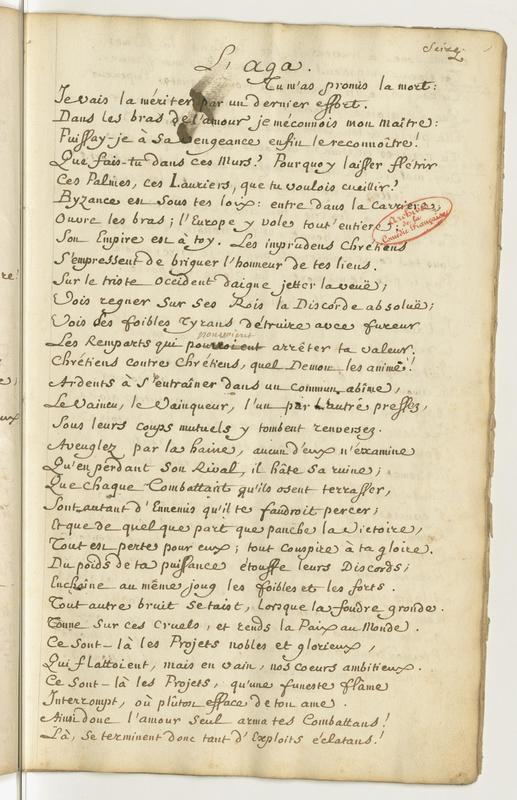 Seize.
L'aga.
Tu m'as promis la mort:
Je vais la mériter par un dernier effort.
Dans les bras de l'amour je méconnois mon maître:
Puissay-je à sa vengeance enfin le reconnoître!
Que fais-tu dans ces murs? Pourquoy laisser flétrir
Ces Palmes, ces Lauriers, que tu voulois cueillir?
Byzance est sous tes loix: entre dans la carriere,
Ouvre les bras; l'Europe y vole tout'entiere;
Archives de la Comédie Française
Son Empire est à toy. Les imprudens Chrétiens
S'empressent de briguer l'honneur de tes liens.
Sur le triste occident daigne jetter la veuë;
Vois regner sur ses Rois la Discorde absoluë;
Vois des foibles Tyrans détruire avec fureur
pouvoient
Les Remparts qui pourroient arrêter ta valeur.
Chrétiens contre Chrétiens, quel Demon les anime!
Ardents à s'entraîner dans un commun abîme,
Le Vaincu, le Vainqueur, l'un par l'autre pressez,
Sous leurs coups mutuels y tombent renversez.
Aveuglez par la haine, aucun d'eux n'examine
Qu'en perdant son Rival, il hâte sa ruine;
Que chaque Combattant qu'ils osent terrasser,
Sont autant d'Ennemis qu'il te faudroit percer;
Et que de quelque part que panche la Victoire,
Tout est perte pour eux; tout conspire à ta gloire.
Du poids de ta puissance étouffe leurs Discords;
Enchaîne au même joug les foibles et les forts.
Tout autre bruit se taist, lorsque la foudre gronde.
Tonne sur ces cruels, et rends la Paix au Monde.
Ce sont-là les Projets nobles et glorieux,
Qui flattoient, mais en vain, nos coeurs ambitieux.
Ce sont-là les Projets, qu'une funeste flâme
Interrompt, où plûtôt efface de ton ame.
Ainsi donc l'amour seul arma tes Combattans!
Là, se terminent donc tant d'Exploits éclatans!